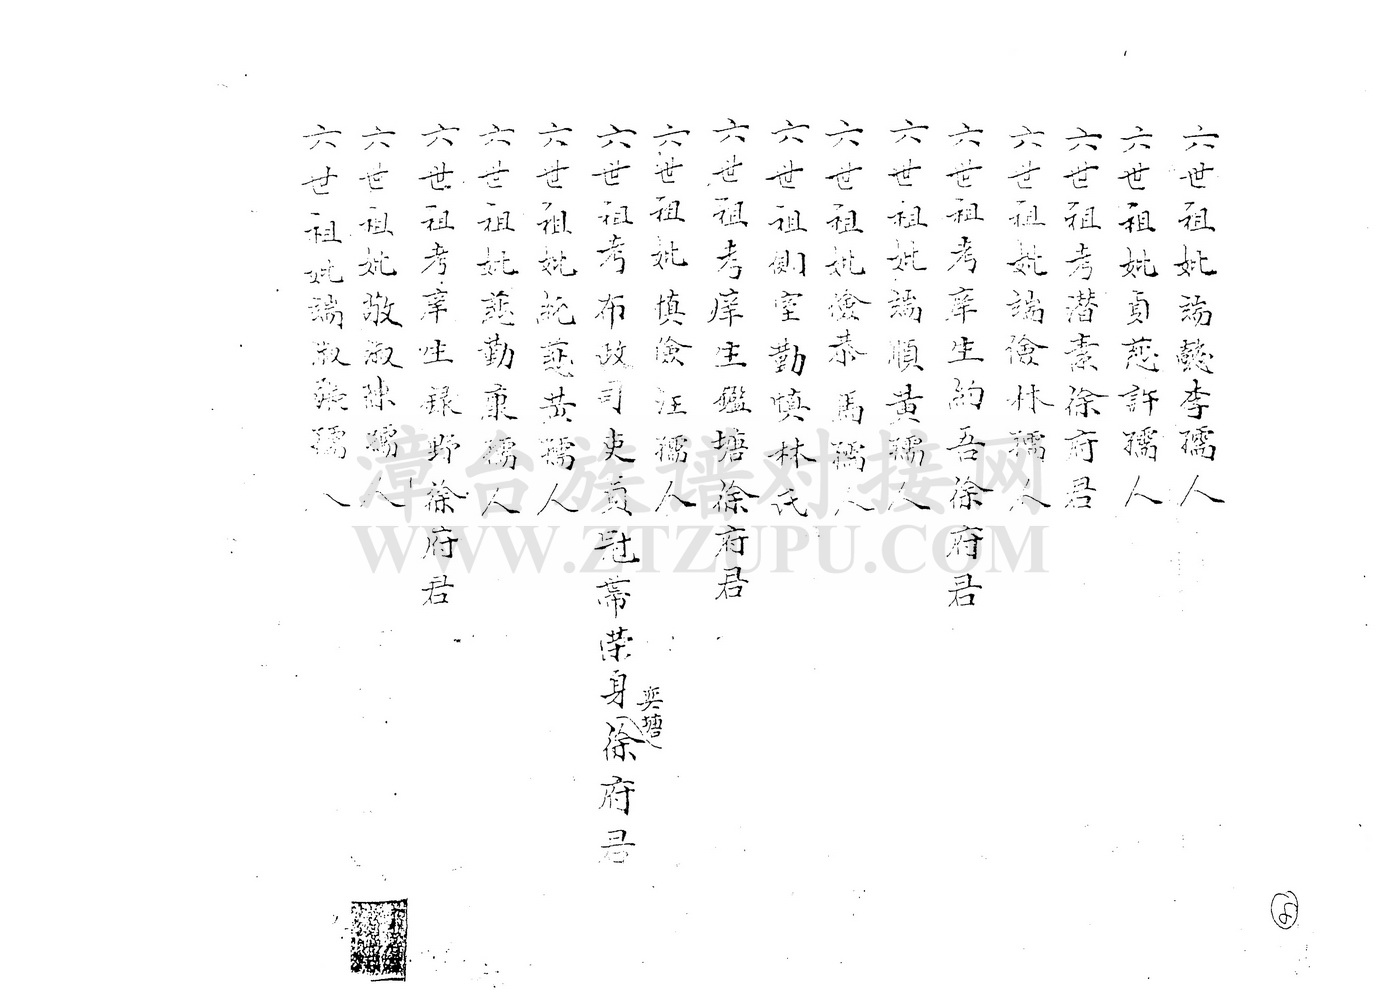 六世祖妣端懿李孺人
六世祖妣貞慈許孺人
六世祖考潛素徐府君
六世祖妣端儉林孺人
六世祖考庠生約吾徐府君
六世祖妣端順黄孺人
六世祖妣儉恭馬孺人
六世祖側室勤慎林氏
六世祖考庠生鑑塘徐府君
六世祖妣慎儉汪孺人
六世祖考布政司吏員冠帶荣身徐府君
奕塘
六世祖妣純慈黄孺人
六世祖妣慈勤康孺人
六世祖考庠生録野徐府君
六世祖妣敬淑陳孺人
六世祖妣端淑張孺人
漳台族谱对接网
WWW.ZTZUPU.COM
8